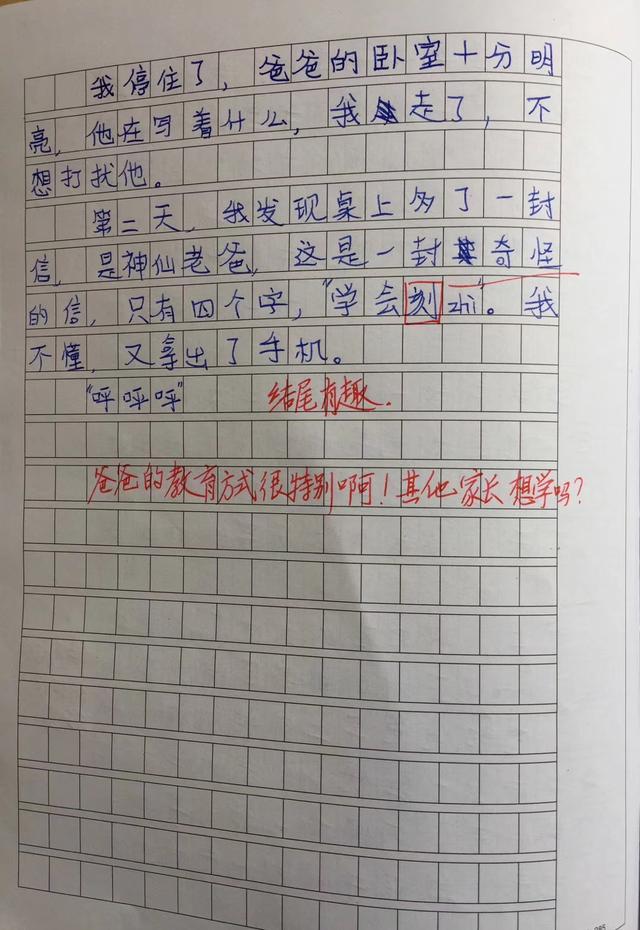 我停住了，爸爸的卧室十分明
亮，他在写着什么，我走了，不
想打找他。
第二天，我发现桌上多了一封
信，是神仙老爸，这是一封奇怪
的信，只有四个字，“学会刻zhi”。我
不懂，又拿出了手机。
“呼呼呼” 结尾有趣.
爸爸的教育方式很特别啊！其他家长想学吗？